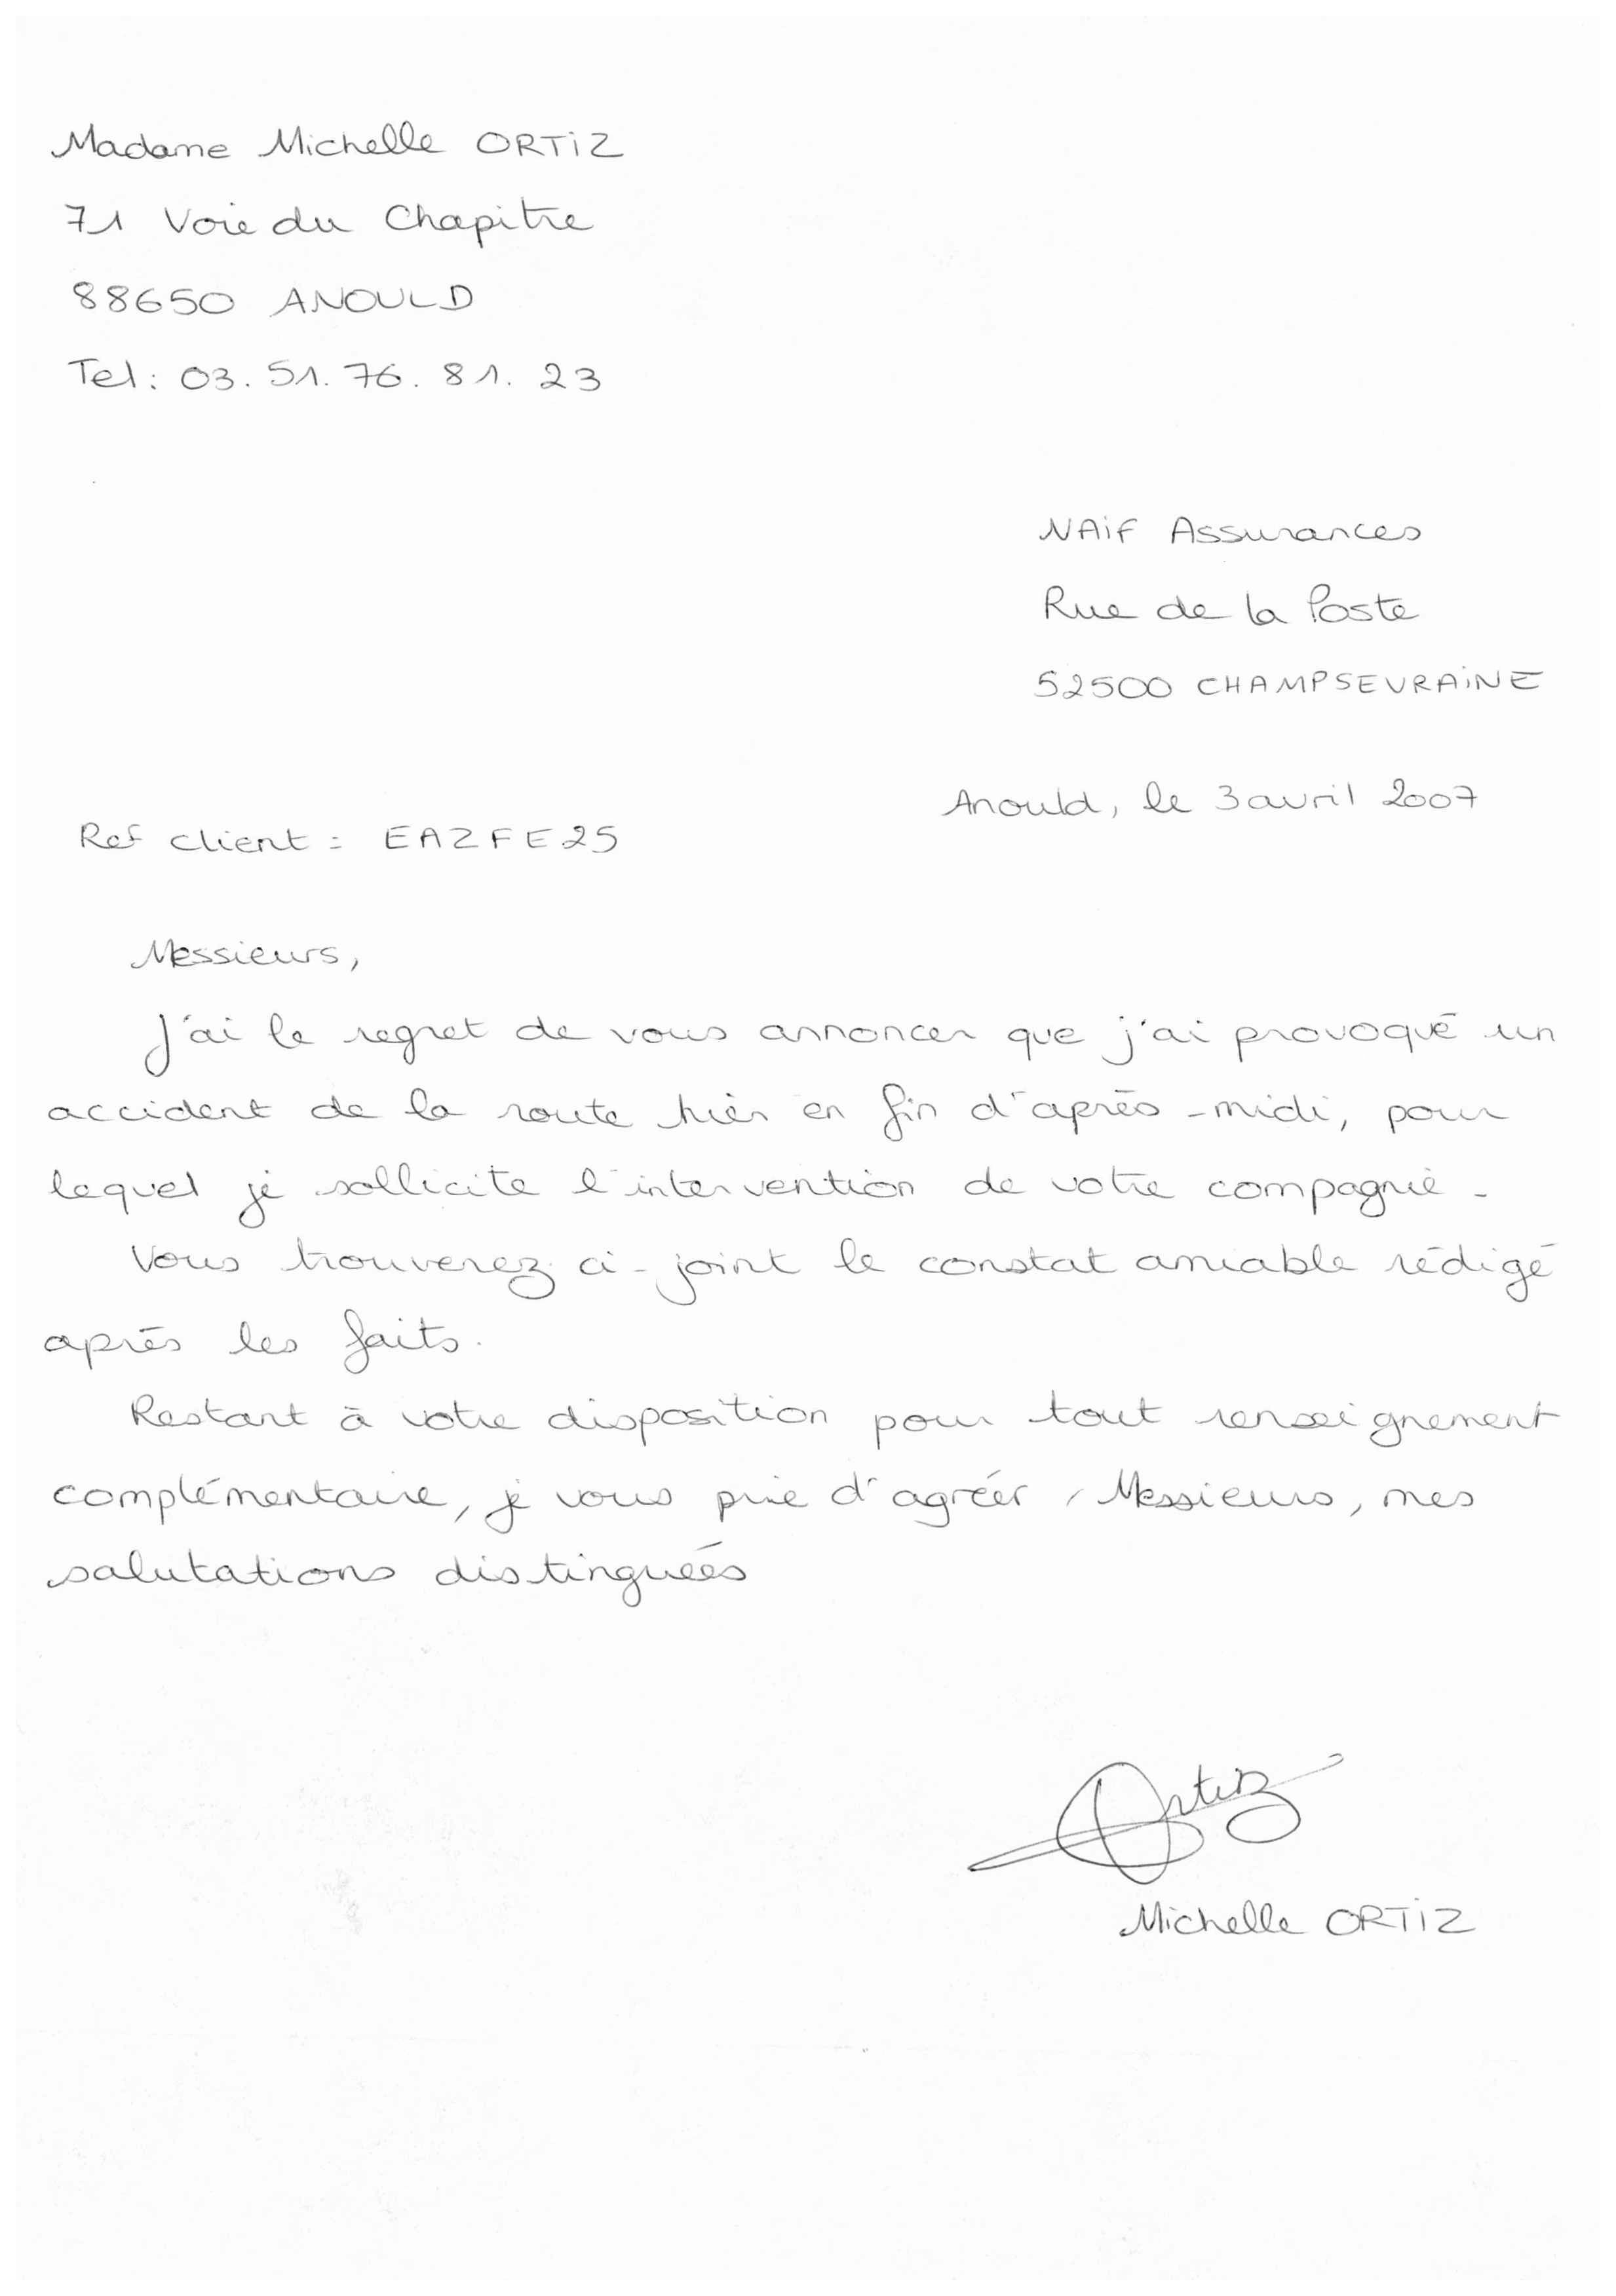 Madame Michelle ORTIZ
71 Voie du Chapitre
88650 ANOULD
Tel: 03.51.76.81.23
NAIF Assurances
Rue de la Poste
52500 CHAMPSEVRAINE
Anould, le 3 avril 2007
Ref client : EAZFE25
Messieurs,
J'ai le regret de vous annoncer que j'ai provoqué un
accident de la route hier en fin d'après-midi, pour
lequel je sollicite l'intervention de votre compagnie.
Vous trouverez ci-joint le constat amiable rédigé
après les faits.
Restant à votre disposition pour tout renseignement
complémentaire, je vous prie d'agréer, Messieurs, mes
salutations distinguées
Ortiz
Michelle ORTIZ